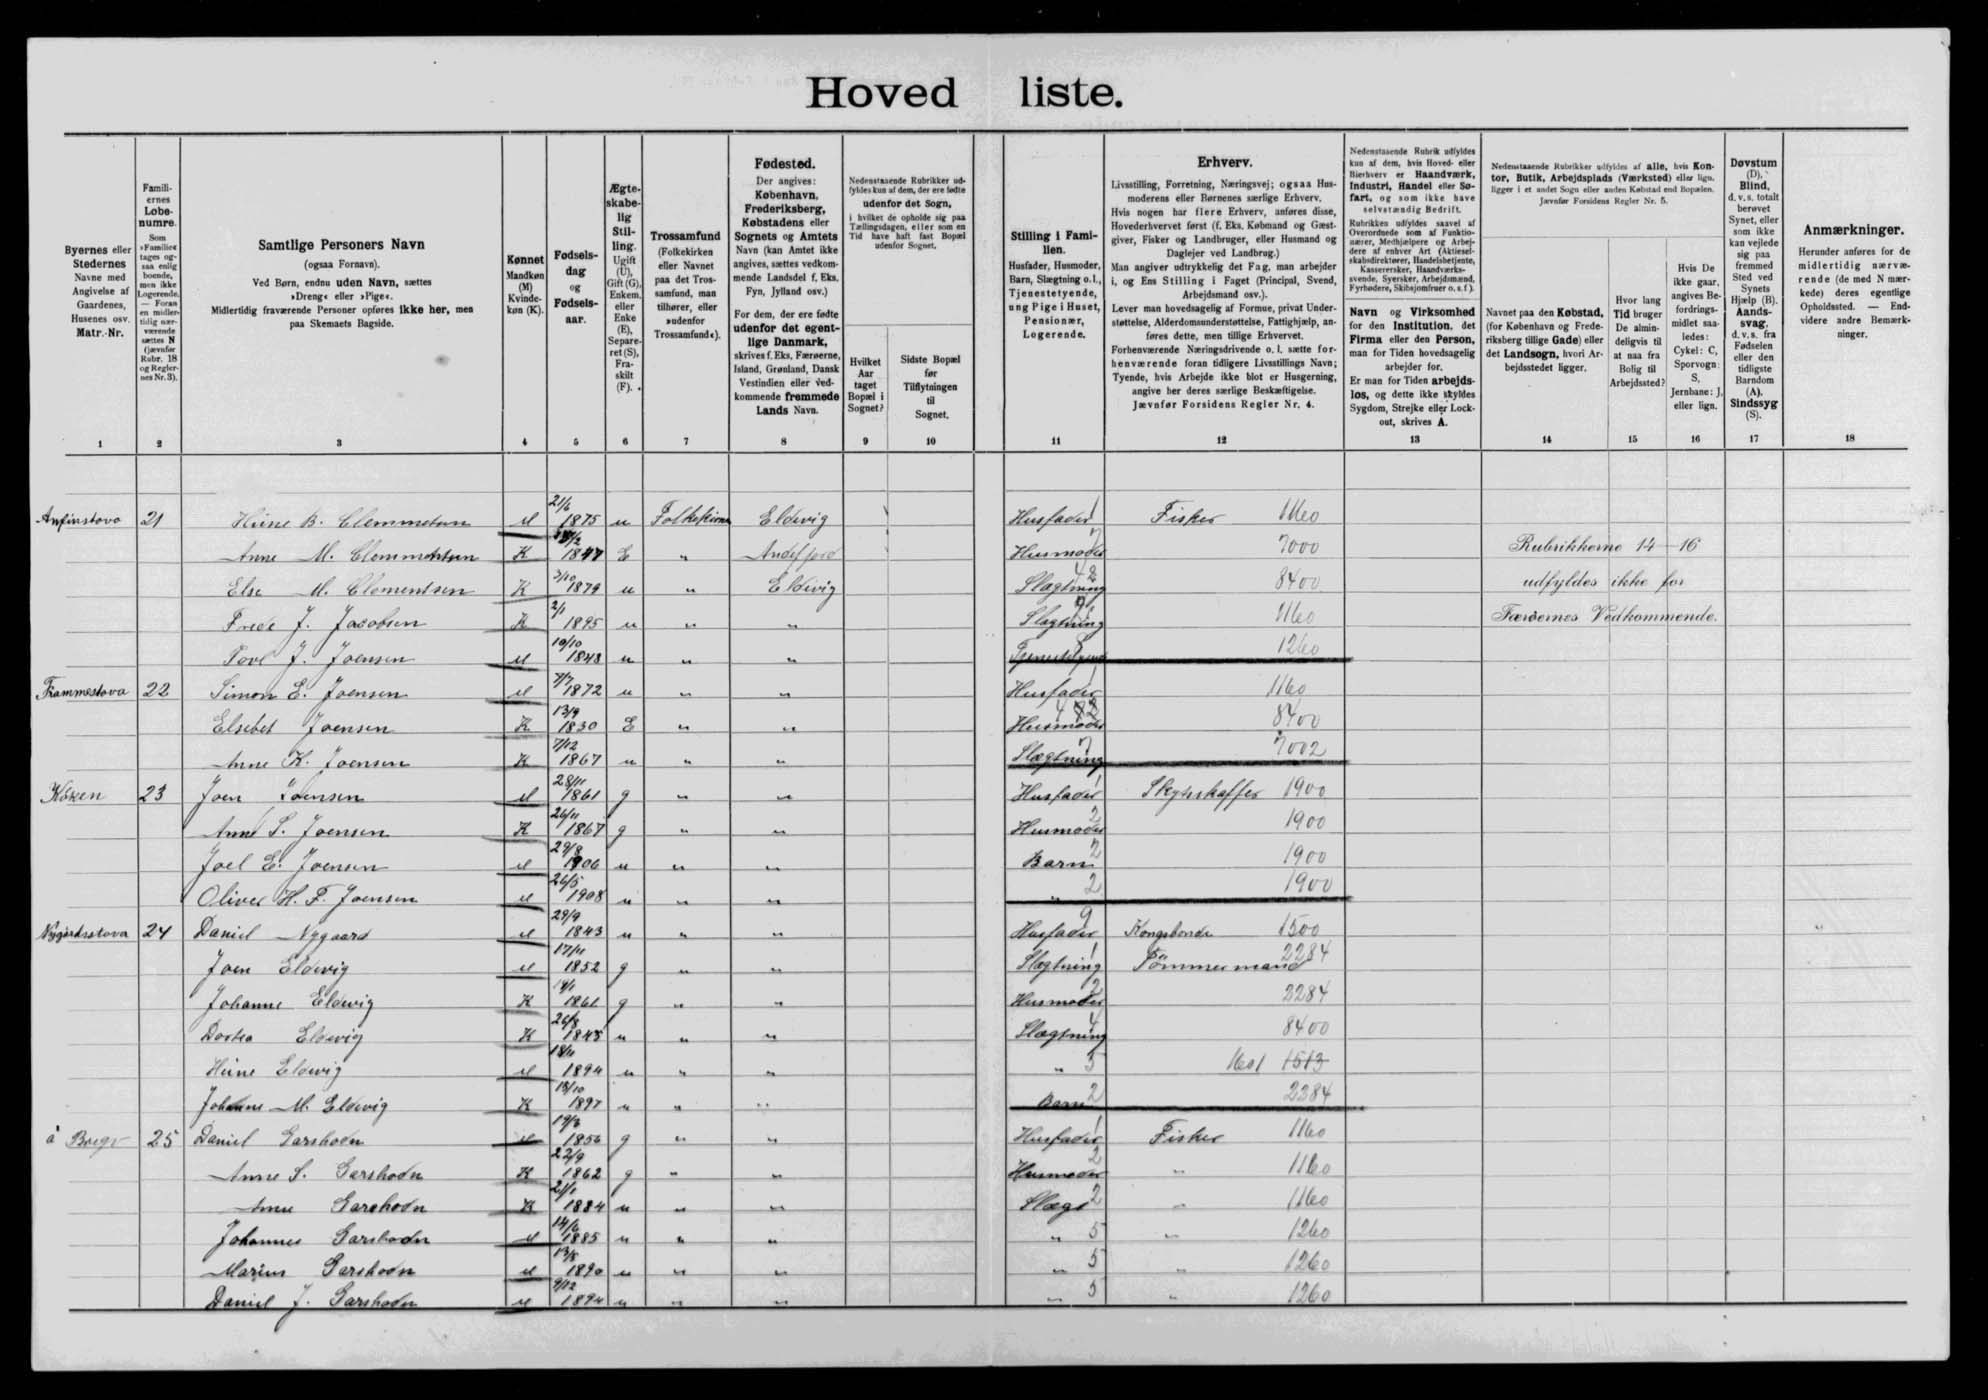 Hovedliste.
Byernes eller Stedernes Navne med Angivelse af Gaardenes, Husenes osv. Matr.-Nr.
Familiernes Løbenumre. Som »Familie« tages ogsaa enlig boende, men ikke Logerende. — Foran en midlertidig nærværende sættes N (jævnfør Rubr. 18 og Reglernes Nr. 3).
Samtlige Personers Navn (ogsaa Fornavn). Ved Børn, endnu uden Navn, sættes »Dreng« eller »Pige«. Midlertidig fraværende Personer opføres ikke her, men paa Skemaets Bagside.
Kønnet Mandkøn (M) Kvindekøn (K).
Fødselsdag og Fødselsaar.
Ægteskabelig Stilling. Ugift (U), Gift (G), Enkem. eller Enke (E), Separeret (S), Fraskilt (F).
Trossamfund (Folkekirken eller Navnet paa det Trossamfund, man tilhører, eller »udenfor Trossamfund«).
Fødested. Der angives: København, Frederiksberg, Købstadens eller Sognets og Amtets Navn (kan Amtet ikke angives, sættes vedkommende Landsdel f. Eks. Fyn, Jylland osv.) For dem, der ere fødte udenfor det egentlige Danmark, skrives f. Eks. Færøerne, Island, Grønland, Dansk Vestindien eller vedkommende fremmede Lands Navn.
Nedenstaaende Rubrikker udfyldes kun af dem, der ere fødte udenfor det Sogn, i hvilket de opholde sig paa Tællingsdagen, eller som en Tid have haft fast Bopæl udenfor Sognet.
Hvilket Aar taget Bopæl i Sognet?
Sidste Bopæl før Tilflytningen til Sognet.
Stilling i Familien. Husfader, Husmoder, Barn, Slægtning o. l., Tjenestetyende, ung Pige i Huset, Pensionær, Logerende.
Erhverv. Livsstilling, Forretning, Næringsvej; ogsaa Husmoderens eller Børnenes særlige Erhverv. Hvis nogen har flere Erhverv, anføres disse, Hovederhvervet først (f. Eks. Købmand og Gæstgiver, Fisker og Landbruger, eller Husmand og Daglejer ved Landbrug.) Man angiver udtrykkelig det Fag, man arbejder i, og Ens Stilling i Faget (Principal, Svend, Arbejdsmand osv.). Lever man hovedsagelig af Formue, privat Understøttelse, Alderdomsunderstøttelse, Fattighjælp, anføres dette, men tillige Erhvervet. Forhenværende Næringsdrivende o. l. sætte forhenværende foran tidligere Livsstillings Navn; Tyende, hvis Arbejde ikke blot er Husgerning, angive her deres særlige Beskæftigelse. Jævnfør Forsidens Regler Nr. 4.
Nedenstaaende Rubrik udfyldes kun af dem, hvis Hoved- eller Bierhverv er Haandværk, Industri, Handel eller Søfart, og som ikke have selvstændig Bedrift.
Rubrikken udfyldes saavel af Overordnede som af Funktionærer, Medhjælpere og Arbejdere af enhver Art (Aktieselskabsdirektører, Handelsbetjente, Kasserersker, Haandværkssvende, Syersker, Arbejdsmænd, Fyrbødere, Skibsjomfruer o. s. f.).
Navn og Virksomhed for den Institution, det Firma eller den Person, man for Tiden hovedsagelig arbejder for. Er man for Tiden arbejdsløs, og dette ikke skyldes Sygdom, Strejke eller Lockout, skrives A.
Nedenstaaende Rubrikker udfyldes af alle, hvis Kontor, Butik, Arbejdsplads (Værksted) eller lign. ligger i et andet Sogn eller anden Købstad end Bopælen. Jævnfør Forsidens Regler Nr. 5.
Navnet paa den Købstad, (for København og Frederiksberg tillige Gade) eller det Landsogn, hvori Arbejdsstedet ligger.
Hvor lang Tid bruger De almindeligvis til at naa fra Bolig til Arbejdssted?
Hvis De ikke gaar, angives Befordringsmidlet saaledes: Cykel: C, Sporvogn: S, Jernbane: J, eller lign.
Døvstum (D). Blind, d. v. s. totalt berøvet Synet, eller som ikke kan vejlede sig paa fremmed Sted ved Synets Hjælp (B). Aandssvag, d. v. s. fra Fødselen eller den tidligste Barndom (A). Sindssyg (S).
Anmærkninger. Herunder anføres for de midlertidig nærværende (de med N mærkede) deres egentlige Opholdssted. — Endvidere andre Bemærkninger.
1 2 3 4 5 6 7 8 9 10 11 12 13 14 15 16 17 18
Anfinstova 21 Heine B. Clemmetsen M 21/6 1875 u Folkekirken Eldevig Husfader 1 Fisker 1160
Anne M. Clemmentsen K 1847 E " Andefjord Husmoder 7 7000 Rubrikkerne 14-16
Else M. Clementsen K 3/10 1879 u " Eldevig Slægtning 4 8400 udfyldes ikke for
Frede J. Jacobsen K 2/1 1895 u " " Slægtning 1160 Færøernes Vedkommende.
Povl J. Joensen M 10/10 1848 u " " Tjenestetyende 1260
Frammestova 22 Simon E. Joensen M 7/7 1872 u " " Husfader 1 1160
Elsebet Joensen K 13/9 1830 E " " Husmoder 8400
Anne K. Joensen K 7/12 1867 u " " Slægtning 7 7002
Kökken 23 Joen Joensen M 28/11 1861 g " " Husfader 1 Skydsskaffer 1900
Anne S. Joensen K 26/11 1867 g " " Husmoder 2 1900
Joel E. Joensen M 29/8 1906 u " " Barn 2 1900
Oliver H. F. Joensen M 26/5 1908 u " " " 2 1900
Nygårdsstova 24 Daniel Nygaard M 29/9 1843 u " " Husfader 9 Kongsbonde 1500
Joen Eldevig M 17/11 1852 g " " Slægtning 1 Tömmermand 2284
Johanne Eldevig K 14/1 1861 g " " Husmoder 2 2284
Dortea Eldevig K 26/8 1845 u " " Slægtning 4 8400
Heine Eldevig M 18/11 1894 u " " " 5 1601 1513
Johanne M. Eldevig K 18/10 1897 u " " Barn 2 2284
á 25 Daniel Garshodn M 19/6 1856 g " " Husfader 1 Fisker 1160
Anne S. Garshodn K 22/9 1862 g " " Husmoder 2 " 1160
Anne Garshodn K 21/1 1884 u " " Slægt 2 " 1160
Johannes Garshodn M 14/6 1885 u " " " 5 " 1260
Marius Garshodn M 13/8 1890 u " " " 5 " 1260
Daniel J. Garshodn M 9/12 1894 u " " " 5 " 1260